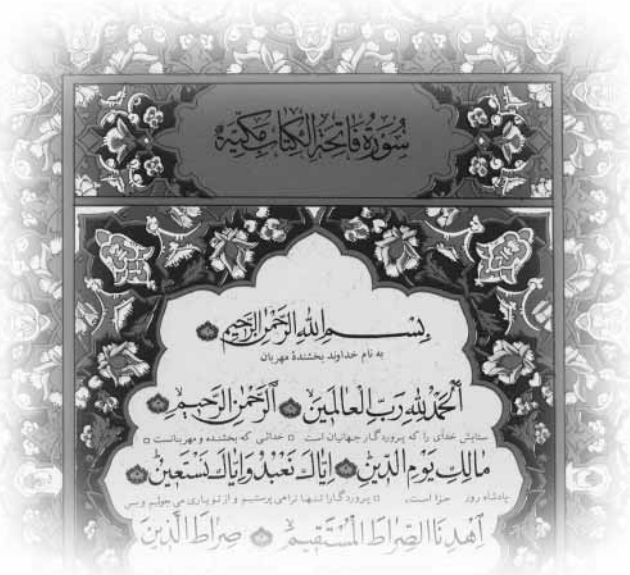 سُورَةُ فَاتِحَةِ الْكِتَابِ مَكِّيَّةٌ
بِسْمِ اللّٰهِ الرَّحْمٰنِ الرَّحِيمِ
به نام خداوند بخشندهٔ مهربان
اَلْحَمْدُ لِلّٰهِ رَبِّ الْعَالَمِينَ اَلرَّحْمٰنِ الرَّحِيمِ
ستایش خدای را که پروردگار جهانیان است خدائی که بخشنده و مهربانست
مَالِكِ يَوْمِ الدِّينِ اِيَّاكَ نَعْبُدُ وَاِيَّاكَ نَسْتَعِينُ
پادشاه روز جزا است، پروردگارا تنها ترا می پرستیم و از تو یاری می جوئیم و بس
اِهْدِنَا الصِّرَاطَ الْمُسْتَقِيمَ صِرَاطَ الَّذِينَ